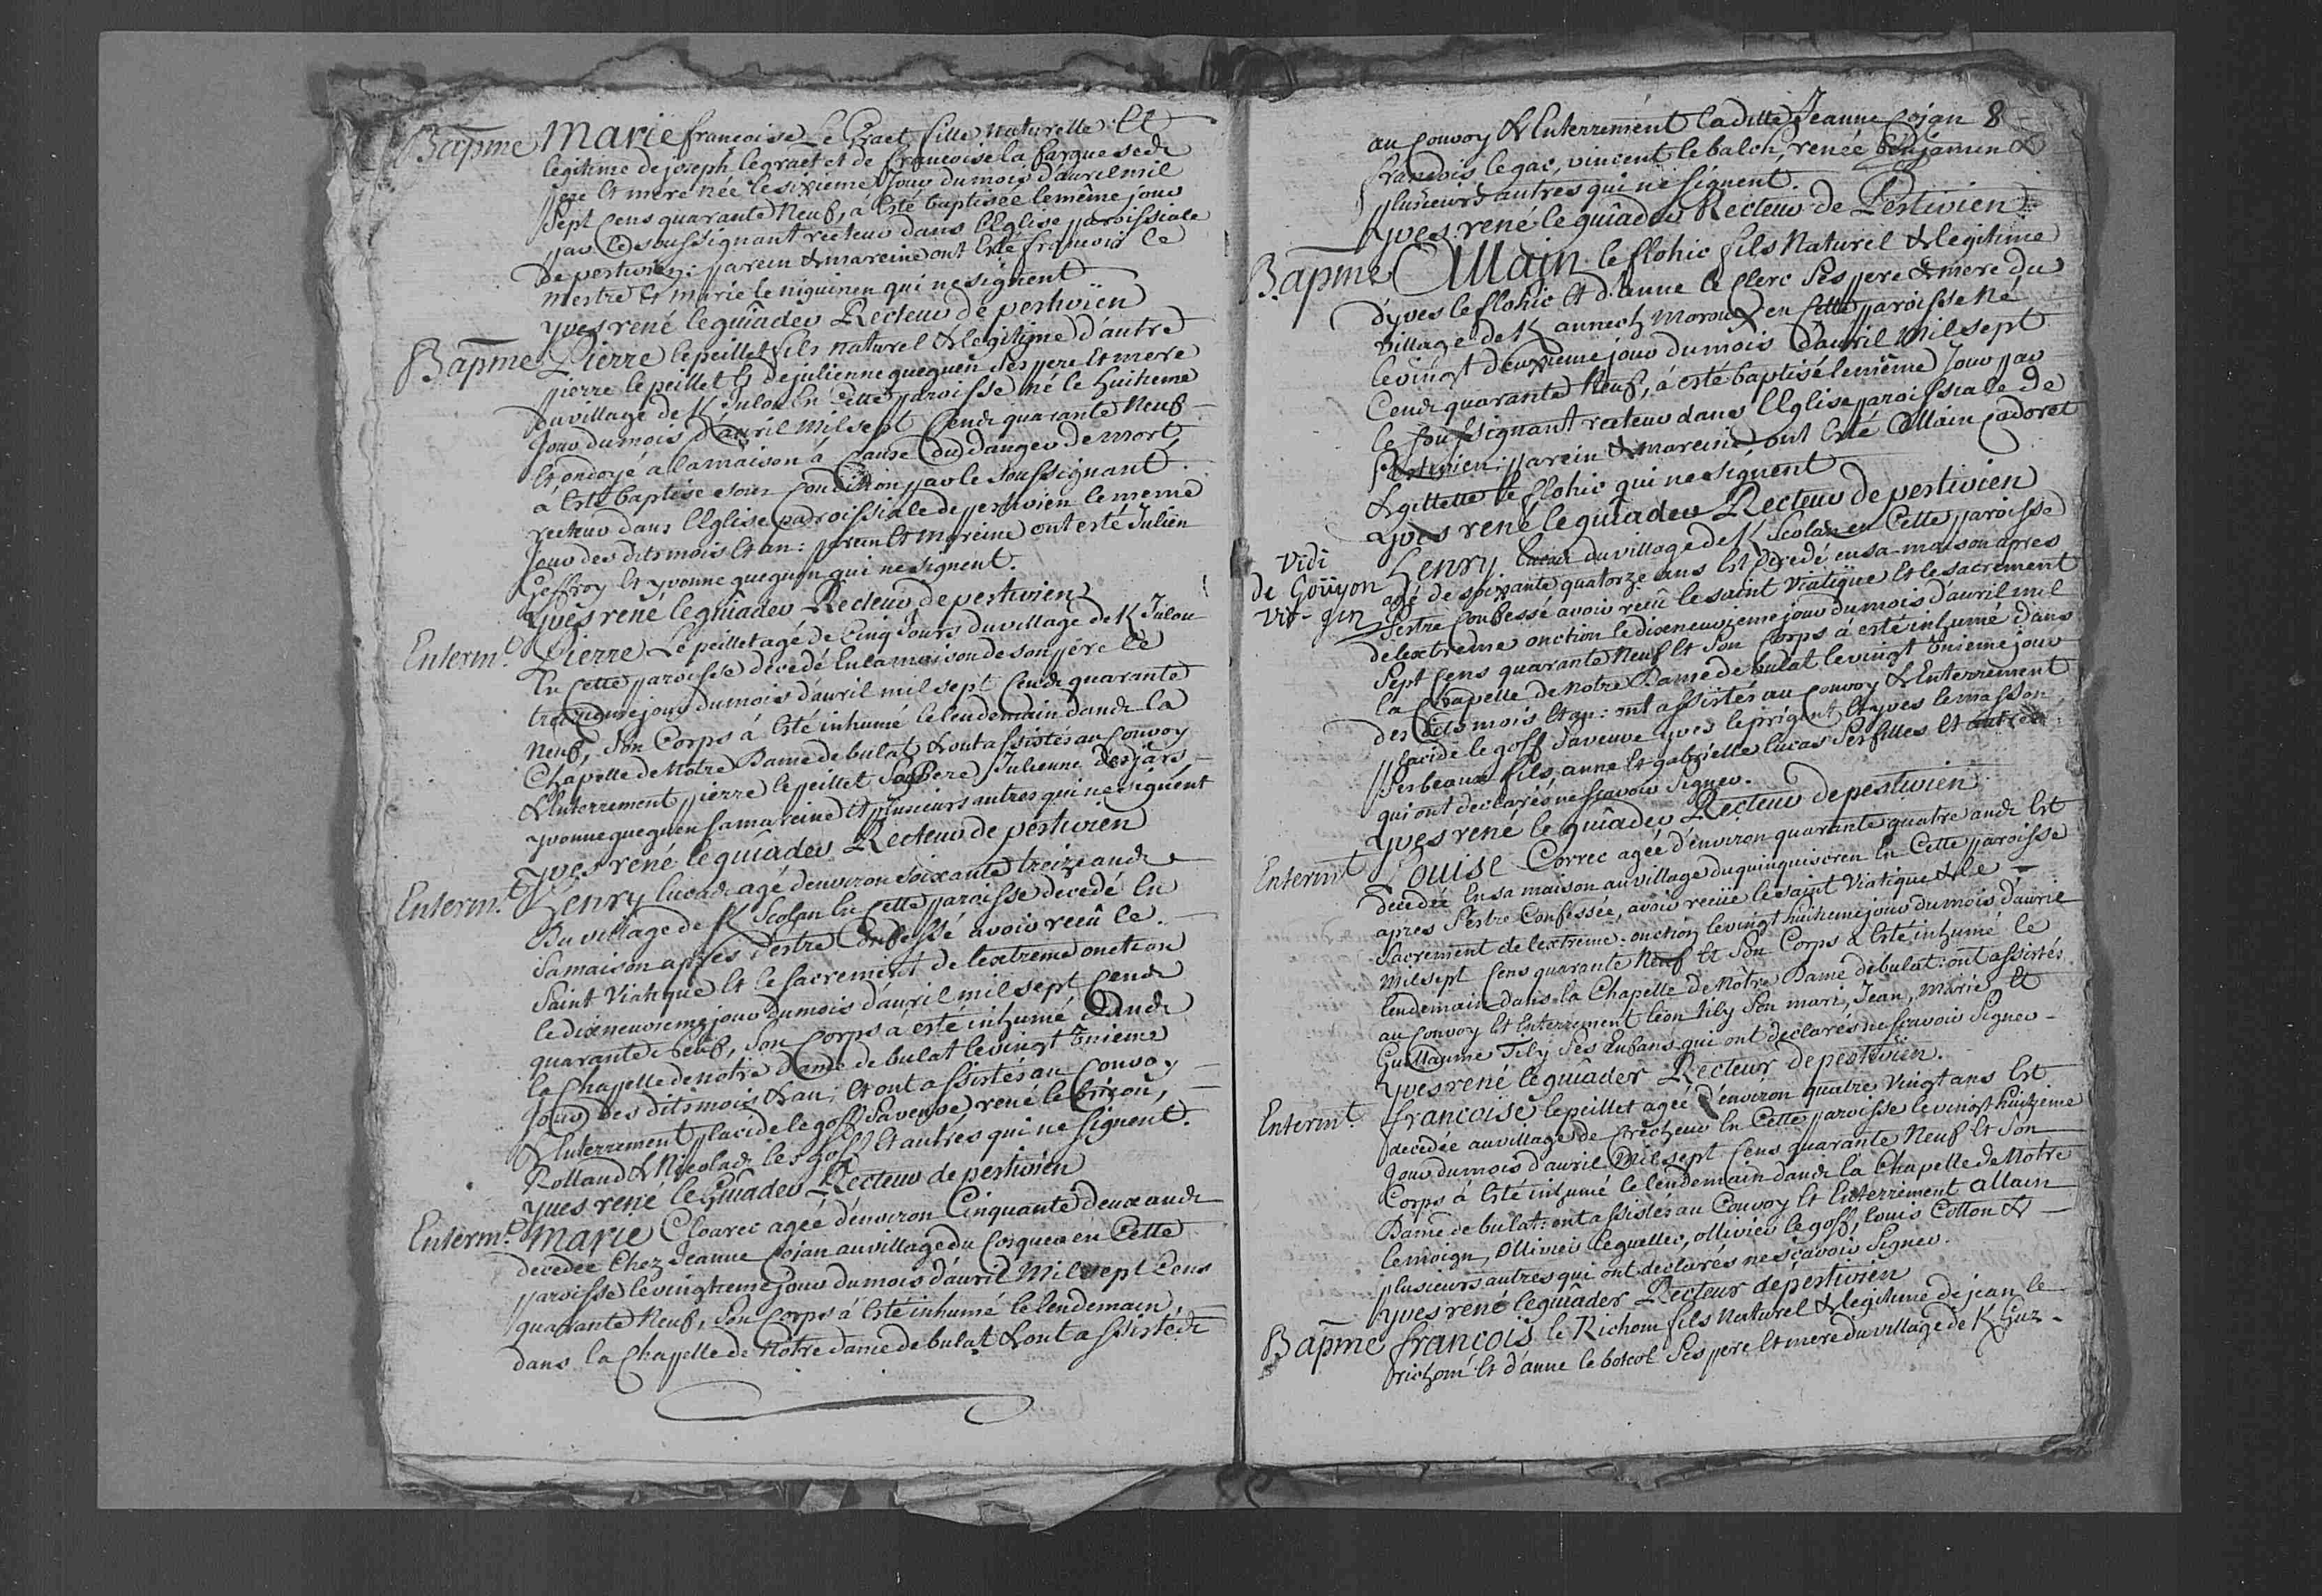 Bapme Marie francoise Le Graet fille naturelle Et
legitime de joseph le graet et de francoise la fargue sede
pere Et mere née le sixieme Jour du mois d'auril mil
Sept Cens quarante Neuf, à Esté baptisée le même jour
par Le soussignant recteur dans l'Eglise paroissiale
De pestivien: parein & mareine ont Esté françois le
mestre Et marie le niguinen qui ne signent
yves rené le guîader Recteur de pestivien
Bapme Pierre le peillet fils naturel & legitime d'autre
pierre le peillet Et de julienne queguen Ses pere Et mere
Du village de K Julou En Cette paroisse né le huitieme
Jour du mois d'auril Mil sept Cends quarante Neuf
Et ondoyé à la maison à Cause du danger de mort,
à Esté baptisé sous Condition par le Soussignant
recteur dans l'Eglise paroissiale de pestivien le meme
Jour des dits mois Et an: parein Et mareine ont esté Julien
Geffroy Et yvonne queguen qui ne signent.
yves rené le guîader Recteur de pestivien
Enterm.t Pierre Le peillet agé de Cinq Jours du village de K Julou
En Cette paroisse decedé En la maison de son père le
treizieme jour du mois d'auril mil sept Cends quarante
Neuf, Son Corps à Esté inhumé le lendemain dands la
Chapelle de Notre Dame de bulat & ont assistés au Convoy
& Enterrement pierre le peillet Son Pere, Julienne Desjârs,
yvonne queguen sa mareine Et plusieurs autres qui ne signent
yves rené le guîader Recteur de pestivien
Enterm.t Henry lucas agé d'environ soixante treize ands
Du village de K Scolan En Cette paroisse decedé En
Sa maison après S'estre Confessé avoir reçû le
Saint Viatique Et le sacrement de l'extreme onction
le dixneuvieme jour du mois d'auril mil sept Cends
quarante Neuf, Son Corps à esté inhumé Dands
la Chapelle de notre Dame de bulat le vingt Unieme
Jour des dits mois & an: Et ont assistés au Convoy
& Enterrement placide le goff Sa veuve, rené le bricon,
Rolland & Nicolads le goff Et autres qui ne signent.
yves rené le Guîader Recteur de pestivien
Enterm.t Marie Cloarec agée d'environ Cinquante deux ands
decedée Chez Jeanne Cojan au village du Cosquer en Cette
paroisse le vingtieme jour du mois d'auril Mil sept Cens
quarante Neuf, Son Corps à Esté inhumé le lendemain
dans la Chapelle de Notre dame de bulat & ont assistéds
8
au Convoy & Enterrement la ditte Jeanne Cojan
francois le gac, vincent le balch, renée benjamin &
plusieurs autres qui ne signent.
yves rené le guîader Recteur de Pestivien
Bapme Allain le flohic fils Naturel & legitime
d'yves le flohic Et d'anne le Clerc Ses pere & mere du
village de K aunech Moroux en Cette paroisse Né
le vingt deuxieme jour du mois d'auril Mil sept
Cends quarante Neuf, à esté baptisé le même Jour par
le Soussignant recteur dans l'Eglise paroissiale de
Pestivien: parein & mareine ont Esté Allain Cadoret
& gillette le flohic qui ne signent
yves rené le guîader Recteur de pestivien
Vidi
de Goüyon
Vic- gen
Henry Lucas du village de K Scolan en Cette paroisse
agé de soixante quatorze ans Est decedé en sa maison apres
S'estre Confessé avoir reçû le saint Viatique Et le sacrement
de lextreme onction le dixneuvieme jour du mois d'auril mil
Sept Cens quarante Neuf Et Son Corps à esté inhumé dans
la Chapelle de Notre Dame de bulat le vingt Unieme jour
des dits mois Et an: ont assistés au Convoy & Enterrement
placide le goff Sa veuve yves le prigent Et yves le masson
Ses beaux fils, anne Et gabrielle lucas Ses filles Et
qui ont declarés ne sçavoir Signer.
yves rené le guîader Recteur de pestivien
Enterm.t Louise Correc agée d'environ quarante quatre ands Est
decedée En sa maison au village du quinquis En Cette paroisse
apres S'estre Confessée, avoir reçüe le saint Viatique & le
Sacrement de lextreme onction le vingt huitieme jour du mois d'auril
Mil sept Cens quarante Neuf Et Son Corps à Esté inhumé le
lendemain dans la Chapelle de Nôtre Dame de bulat: ont assistés
au Convoy Et Enterrement leon tily Son mari, Jean, Marie Et
Guillaume Tily Ses Enfans qui ont declarés ne sçavoir Signer
yves rené le guîader Recteur de pestivien.
Enterm.t francoise le peillet agée d'environ quatre Vingt ans Est
decedée au village de En Cette paroisse le vingt huitieme
Jour du mois d'auril Mil sept Cens quarante Neuf Et Son
Corps à Esté inhumé le lendemain dands la Chapelle de Notre
Dame de bulat: ont assistés au Convoy Et Enterrement allain
le moign, Ollivier le guellec, ollivier le goff, louis Cotton &
plusieurs autres qui ont declarés ne sçavoir Signer.
yves rené le guîader Recteur de pestivien
Bapme françois le Richom fils Naturel & legitime de jean le
richom Et d'anne le botcol Ses pere Et mere du village de K